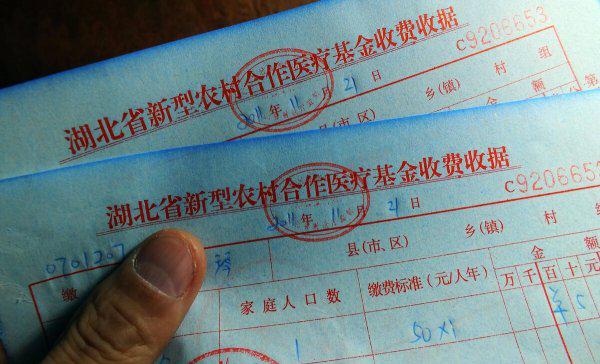 湖北省新型农村合作医疗基金收费收据
C9206653
2011 年 11 月 21 日
乡(镇) 村 组
县(市、区)
金 额
湖北省新型农村合作医疗基金收费收据
C920665
2011 年 11 月 21 日
乡(镇) 村 组
0701207
县(市、区)
缴 家庭人口数 缴费标准(元/人年) 金 额
万 千 百 十 元
1 50×1 ¥ 5